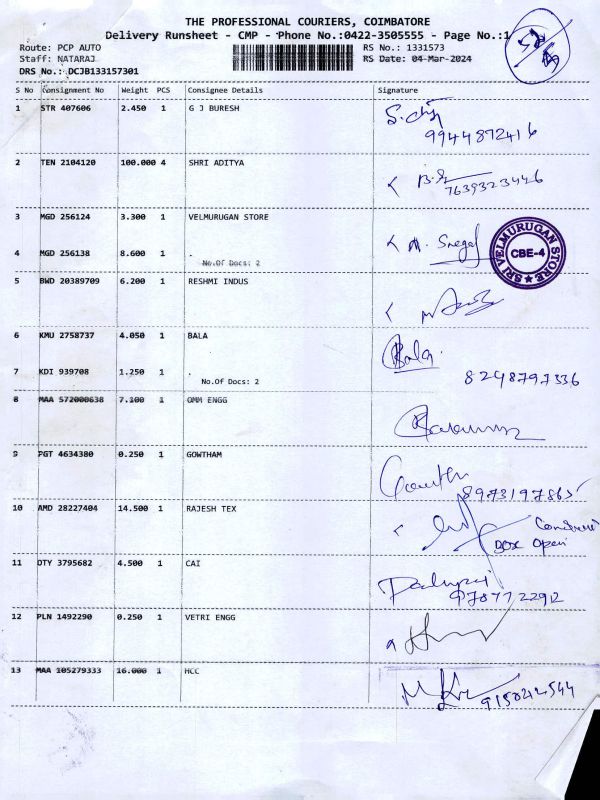 THE PROFESSIONAL COURIERS, COIMBATORE
Delivery Runsheet - CMP - Phone No.:0422-3505555 - Page No.:1
Route: PCP AUTO RS No.: 1331573
Staff: NATARAJ RS Date: 04-Mar-2024
DRS No.: DCJB133157301
S No Consignment No Weight PCS Consignee Details Signature
1 STR 407606 2.450 1 G J BURESH
9944872416
2 TEN 2104120 100.000 4 SHRI ADITYA
7639323446
3 MGD 256124 3.300 1 VELMURUGAN STORE
SRI VELMURUGAN STORE
CBE-4
4 MGD 256138 8.600 1 .
No.Of Docs: 2
5 BWD 20389709 6.200 1 RESHMI INDUS
6 KMU 2758737 4.050 1 BALA
Bala
7 KDI 939708 1.250 1 .
8248797336
No.Of Docs: 2
8 MAA 572000638 7.100 1 OMM ENGG
9 PGT 4634380 0.250 1 GOWTHAM
Gowtham
8973197865
10 AMD 28227404 14.500 1 RAJESH TEX
Box Open
11 DTY 3795682 4.500 1 CAI
9787722912
12 PLN 1492290 0.250 1 VETRI ENGG
13 MAA 105279333 16.000 1 HCC
9150214544